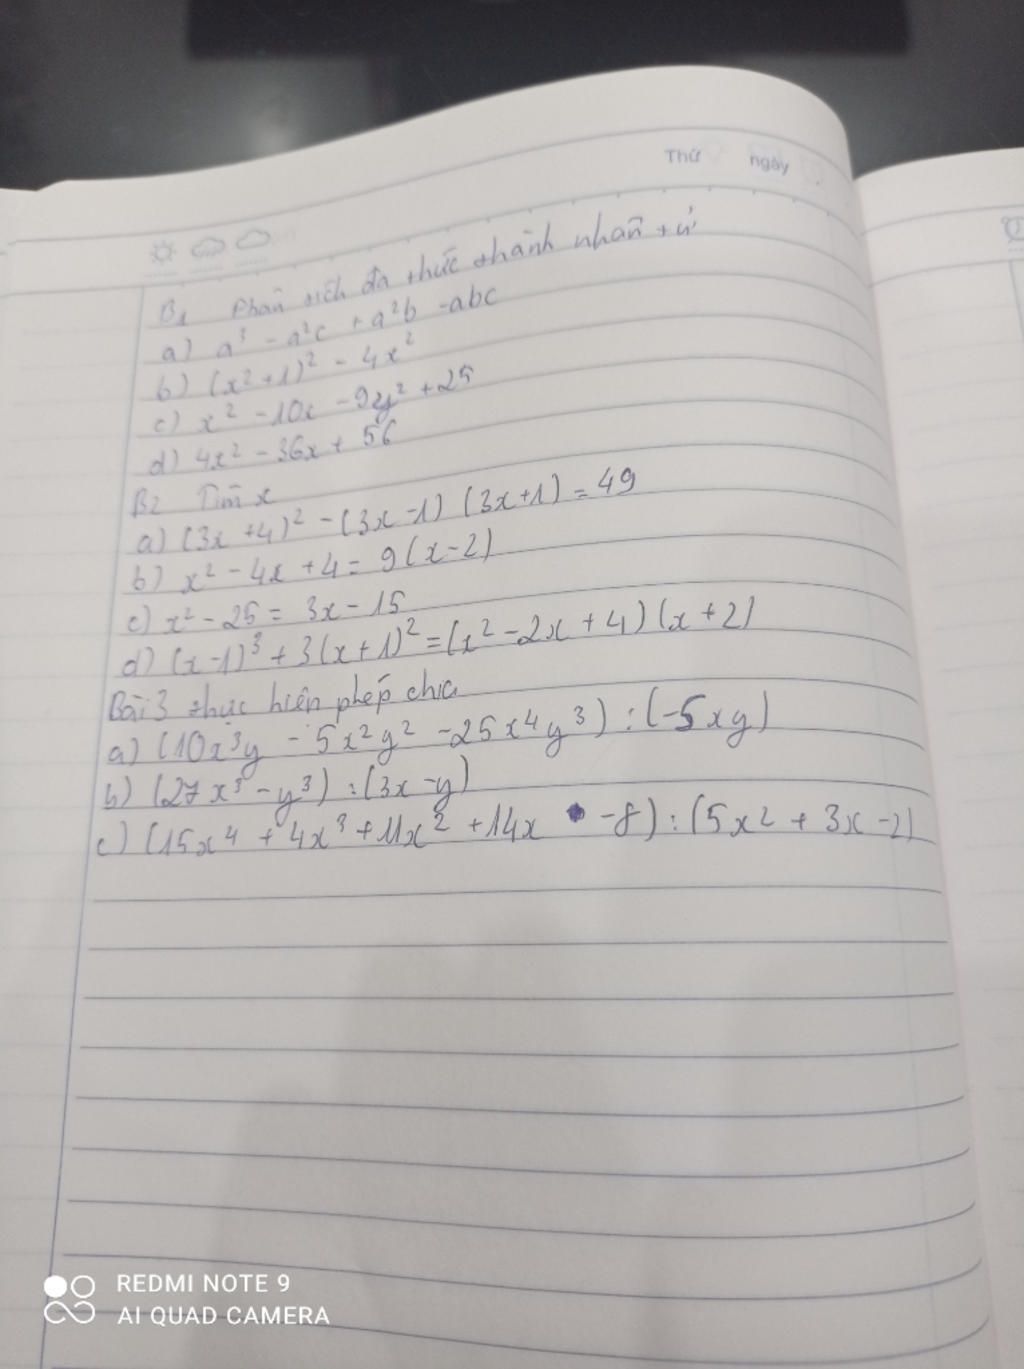 Thứ ngày
B1 Phân tích đa thức thành nhân tử
a) a³ - a²c + a²b - abc
b) (x² + 1)² - 4x²
c) x² - 10x - 9y² + 25
d) 4x² - 36x + 56
B2 Tìm x
a) (3x + 4)² - (3x - 1) (3x + 1) = 49
b) x² - 4x + 4 = 9(x - 2)
c) x² - 25 = 3x - 15
d) (x - 1)³ + 3(x + 1)² = (x² - 2x + 4) (x + 2)
Bài 3 thực hiện phép chia
a) (10x³y - 5x²y² - 25x⁴y³) : (-5xy)
b) (27x³ - y³) : (3x - y)
c) (15x⁴ + 4x³ + 11x² + 14x - 8) : (5x² + 3x - 2)
REDMI NOTE 9
AI QUAD CAMERA